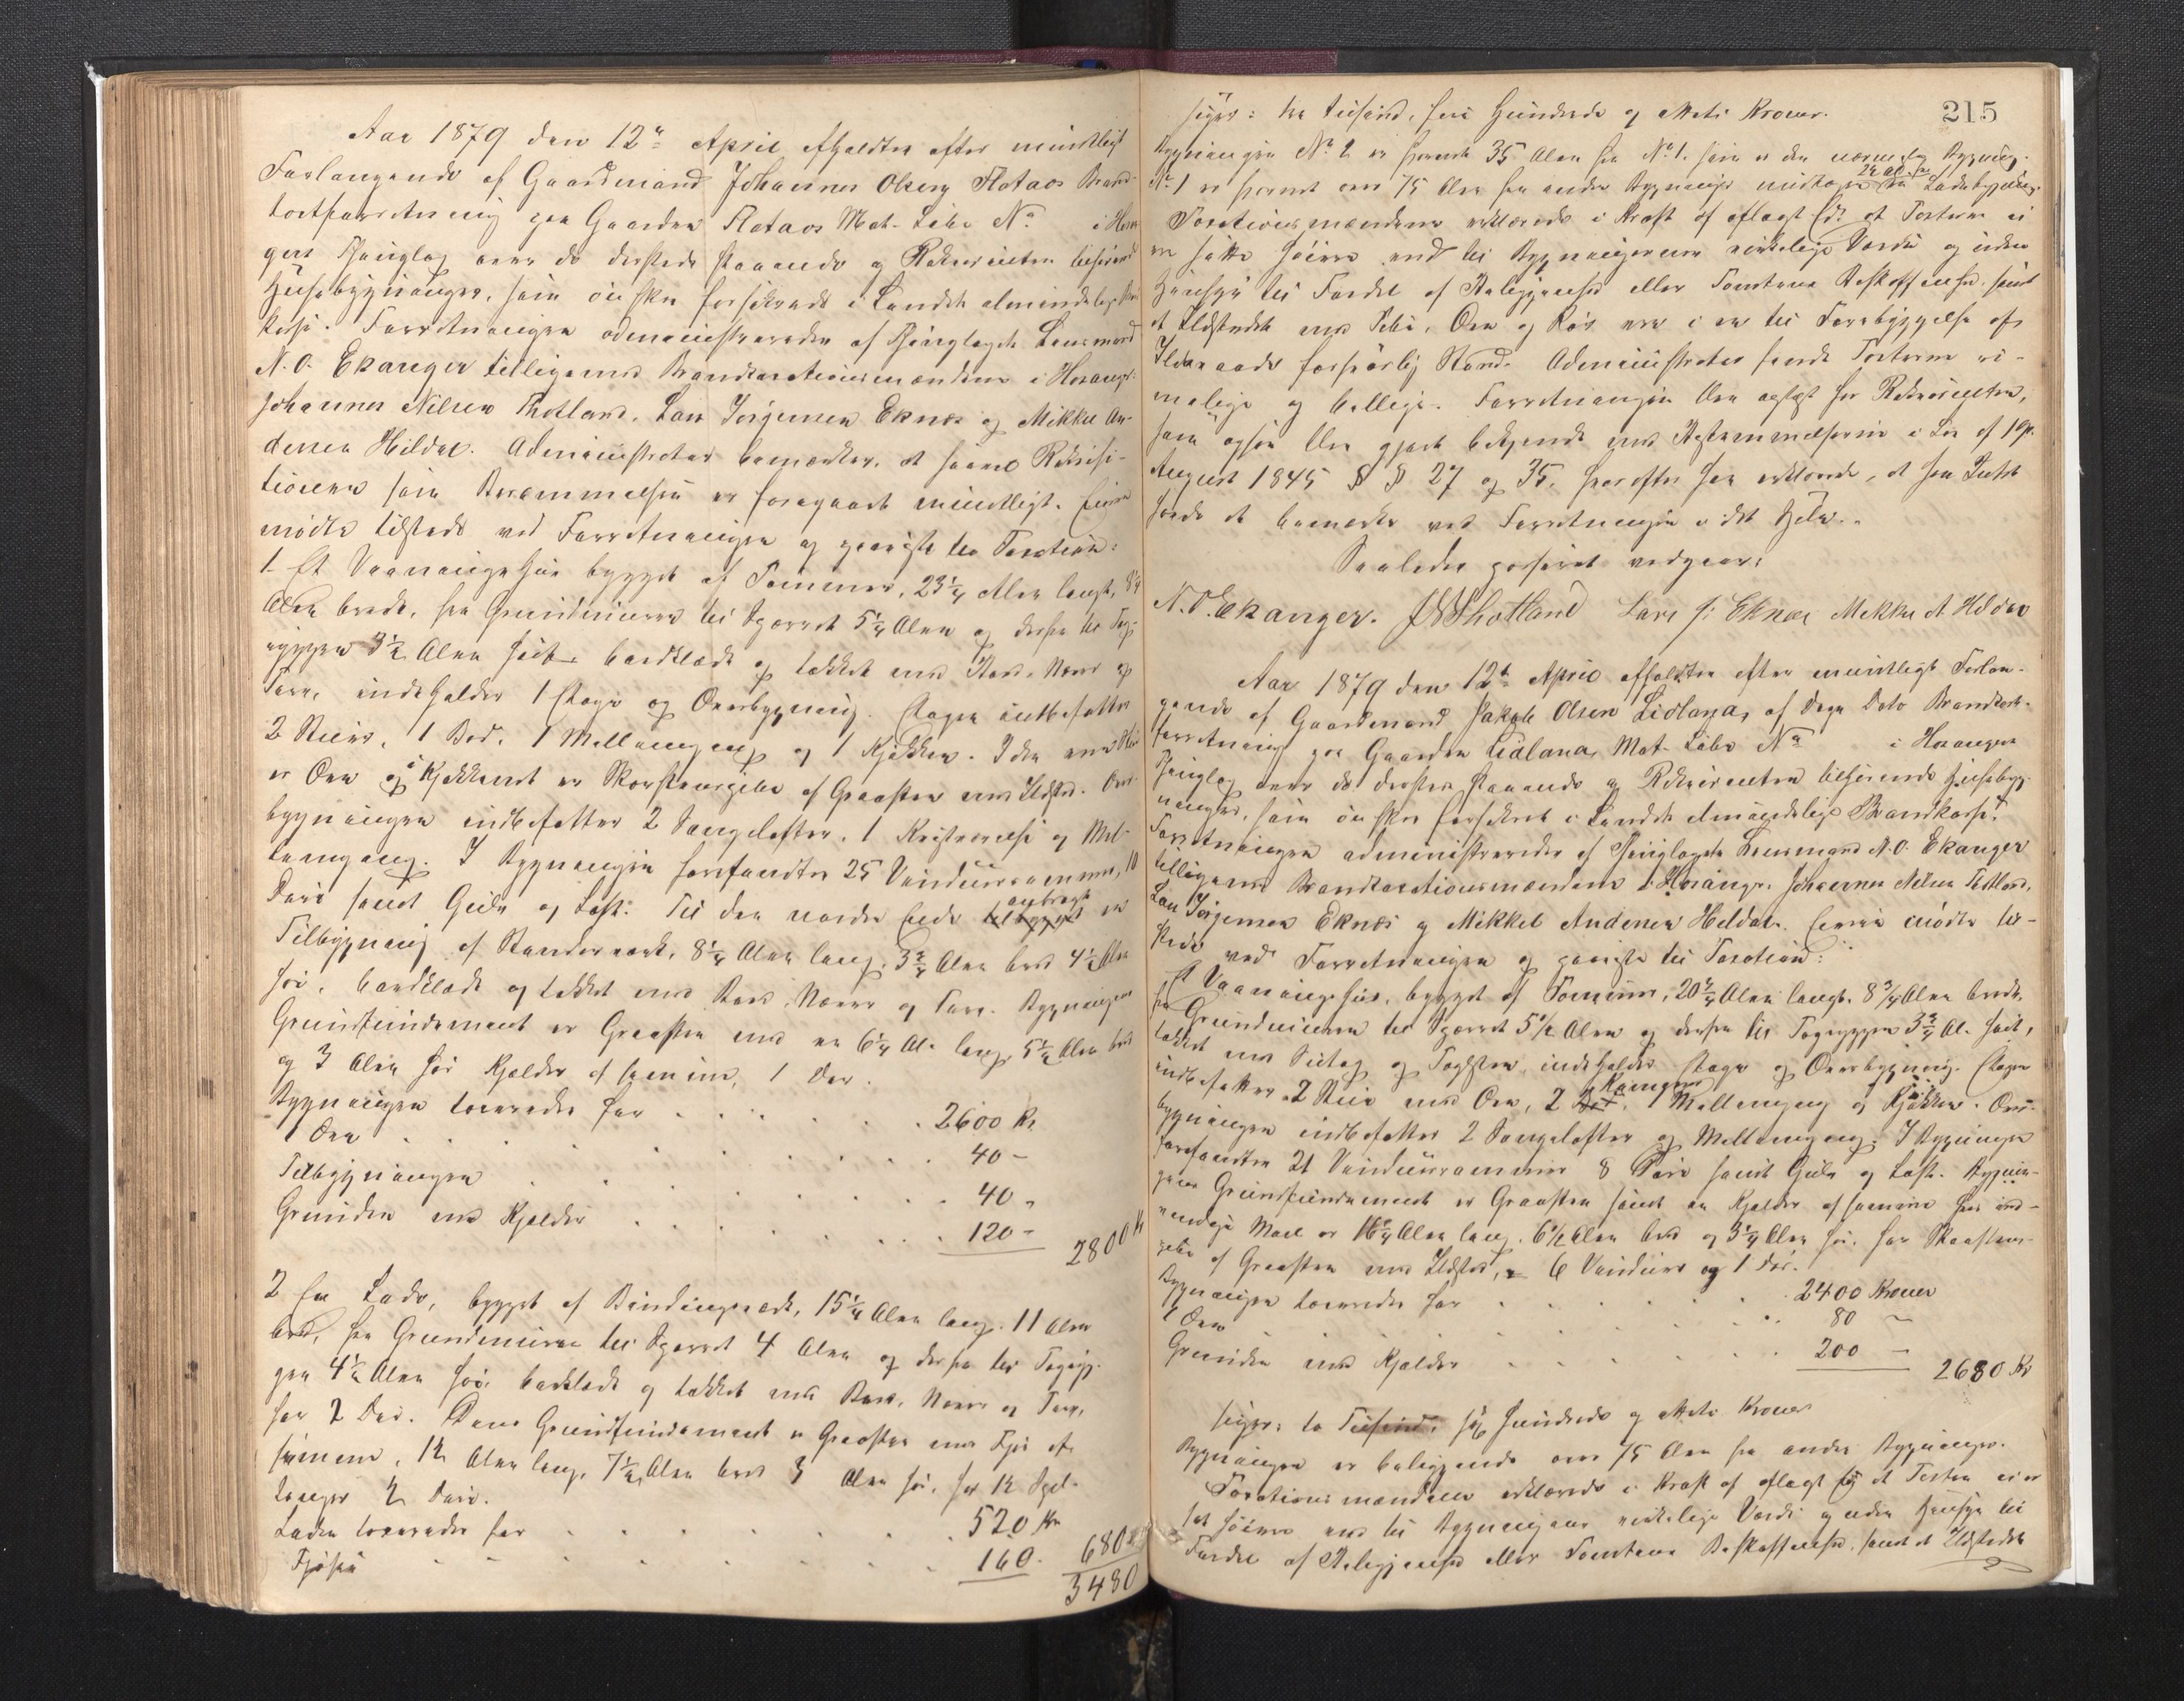 Aar 1879 den 12te April afholdtes efter mundtligt
Forlangende af Gaardmand Johannes Olsen Flataas Brand-
taxtforretning paa Gaarden Flataas Mat. Løbe No i Hosan-
gers Thinglag over de dersteds staaende og Rekvirenten tilhørende
Husebygninger, som ønskes forsikrede i Landets almindelige Brand-
kasse. Forretningen administreredes af Thinglagets Lensmand
N. O. Ekanger tilligemed Brandtaxationsmændene i Hosanger:
Johannes Nilsen Thotland, Lars Jørgensen Eknæs og Mikkel An-
dersen Hildal. Administrator bemærker, at saavel Rekvisi-
tionen som Berammelsen er foregaaet mundtligt. Eieren
mødte tilstede ved Forretningen og paaviste til Taxation:
1 Et Vaaningshus bygget af Tømmer, 23 1/4 Alen langt, 8 1/4
Alen bredt, fra Grundmuren til Sperret 5 1/4 Alen og derfra til Tag-
ryggen 3 1/2 Alen høit, bordklædt og tækket med Bord, Næver og
Torv, indeholder 1 Etage og Overbygning. Etagen indbefatter
2 Stuer, 1 Bod, 1 Mellemgang og 1 Kjøkken. I den ene Stue
er Ovn og i Kjøkkenet er Skorstenspibe af Graasten med Ildsted. Over-
bygningen indbefatter 2 Sængelofter, 1 Kvistværelse og Mel-
lemgang. I Bygningen forefandtes 25 Vinduesrammer, 10
Døre samt Gulv og Loft. Til den nordre Ende tilbygget anbragt en
Tilbygning af Stenderværk, 8 1/4 Alen lang, 3 3/4 Alen bred 4 1/2 Alen
høi, bordklædt og tækket med Bord, Næver og Torv. Bygningens
Grundfundament er Graasten med en 6 1/4 Al. lang, 5 1/2 Alen bred
og 3 Alen høi Kjælder af samme, 1 Dør.
Bygningen taxeredes for . . . . 2600 Kr.
1 Ovn . . . . 40 -
Tilbygningen . . . . 40 "
Grunden med Kjælder . . . . 120 - 2800 Kr
2 En Lade, bygget af Bindingsværk, 15 1/4 Alen lang, 11 Alen
bred, fra Grundmuren til Sperret 4 Alen og derfra til Tagryg-
gen 4 1/2 Alen høi, bordklædt og tækket med Bord, Næver og Torv,
har 2 Dør. Dens Grundfundament er Graasten med Fjøs af
samme, 12 Alen lang, 7 1/2 Alen bred 3 Alen høi, har 12 Spil-
tænger 2 Døre.
Laden taxeredes for . . . . 520 Kr
Fjøsen . . . . 160 - 680 "
3480
215
siger: tre tusind, fire Hundrede og otteti Kroner.
Bygningen No 2 er fjernet 35 Alen fra No 1, som er den nærmeste Bygning.
No 1 er fjernet over 75 Alen fra andre Bygninger undtagen Ladebygning.
Taxationsmændene erklærede i Kraft af aflagt Ed at Taxterne ei
er satte høiere end til Bygningernes virkelige Værdi og uden
Hensyn til Fordel af Beliggenhed eller Tomtens Beskaffenhed, samt
at Ildstedet med Pibe, Ovn og Rør var i en til Forebyggelse af
Ildsvaade forsvarlig Stand. Administrator fandt Taxterne ri-
melige og billige. Forretningen blev oplæst for Rekvirenten,
som ogsaa blev gjort bekjendt med Bestemmelserne i Lov af 19de
August 1845 § § 27 og 35, hvorefter han erklærede, at han Intet
havde at bemærke ved Forretningen i det Hele.
Saaledes passeret vedgaaes:
N. O. Ekanger. J N Thotland Lars J: Eknæs Mikkel A Hildal
Aar 1879 den 12te April afholdtes efter mundtligt Forlan-
gende af Gaardmand Jakob Olsen Lidlana, af Dags Dato Brandtaxt-
forretning paa Gaarden Lidlana, Mat. Løbe No i Hosangers
Thinglag over de dersteds staaende og Rekvirenten tilhørende Husebyg-
ninger, som ønskes forsikret i Landets almindelige Brandkasse.
Forretningen administreredes af Thinglagets Lensmand N. O. Ekanger
tilligemed Brandtaxationsmændene i Hosanger: Johannes Nilsen Thotland,
Lars Jørgensen Eknæs og Mikkel Andersen Hildal. Eieren mødte til-
stede ved Forretningen og paaviste til Taxation:
Et Vaaningshus, bygget af Tømmer, 20 3/4 Alen langt, 8 3/4 Alen bredt,
fra Grundmuren til Sperret 5 1/2 Alen og derfra til Tagryggen 3 3/4 Al. høit,
tækket med Sutag og Tagsten, indeholder Etage og Overbygning. Etagen
indbefatter 2 Stuer med Ovn, 2 Kamers, 1 Mellemgang og Kjøkken. Over-
bygningen indbefatter 2 Sængelofter og Mellemgang. I Bygningen
forefandtes 21 Vinduesrammer 8 Døre samt Gulv og Loft. Bygnin-
gens Grundfundament er Graasten samt en Kjælder af samme hvis ind-
vendige Maal er 16 3/4 Alen lang, 6 1/2 Alen bred og 3 1/4 Alen høi, har Skorstens-
pibe af Graasten med Ildsted, 6 Vinduer og 1 Dør.
Bygningen taxeredes for . . . . 2400 Kroner
2 Ovne . . . . 80 -
Grunden med Kjælder . . . . 200 - 2680 Kr
siger: to Tusind, sex Hundrede og otteti Kroner
Bygningen er beliggende over 75 Alen fra andre Bygninger.
Taxationsmændene erklærede i Kraft af aflagt Ed at Taxten ei er
sat høiere end til Bygningens virkelige Værdi og uden Hensyn til
Fordel af Beliggenhed eller Tomtens Beskaffenhed, samt at Ildstedet